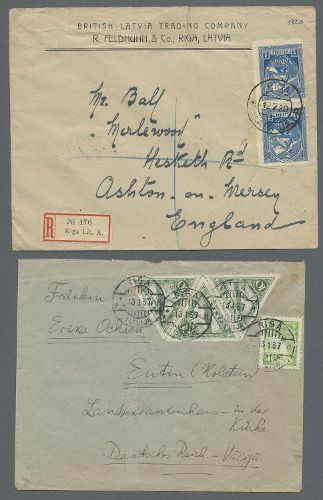 1920
BRITISH-LATVIA TRADING COMPANY
R. FELDHUHN & Co., RIGA, LATVIA
Mr. Ball
"Merlewood"
Hesketh Rd
Ashton-on-Mersey
England
R
№ 476
Riga Lit. A.
Fräulein
Erika
Eutin (Holstein)
Landeskrankenhaus - in der
Küche
Deutsches Reich - Vācija
RIGA